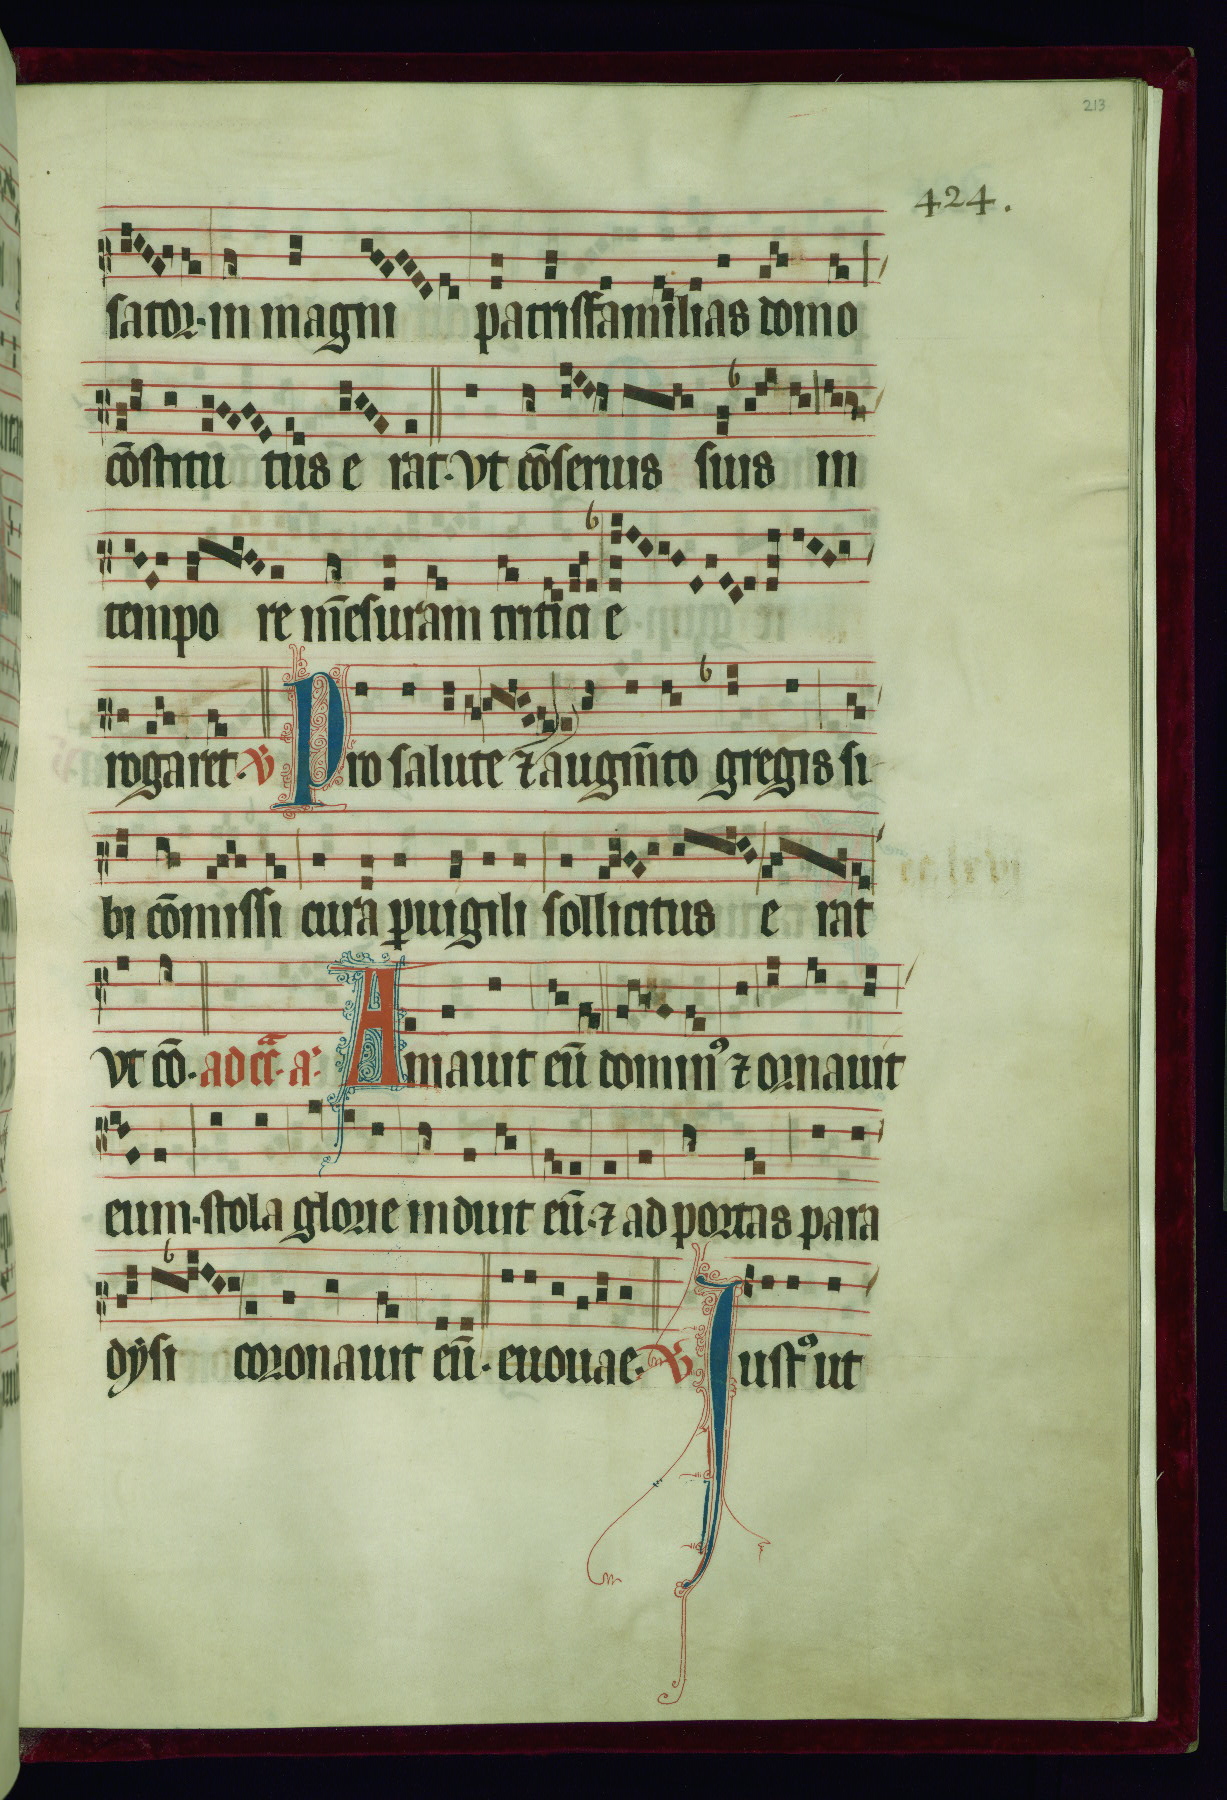 213
424.
sator·in magni patrisfamilias domo
cōstitu tus e rat·Vt cōseruis suis in
tempo re mēsuram tritici e
rogaret·℣ Pro salute ⁊ augm̄to gregis si
bi cōmissi cura ꝑuigili sollicitus e rat
Vt cō· ad a· Amauit eū dominꝰ ⁊ ornauit
eum·stola glorie induit eū·⁊ ad portas para
dẏsi coronauit eū·euouae·℣ Iustꝰ ut